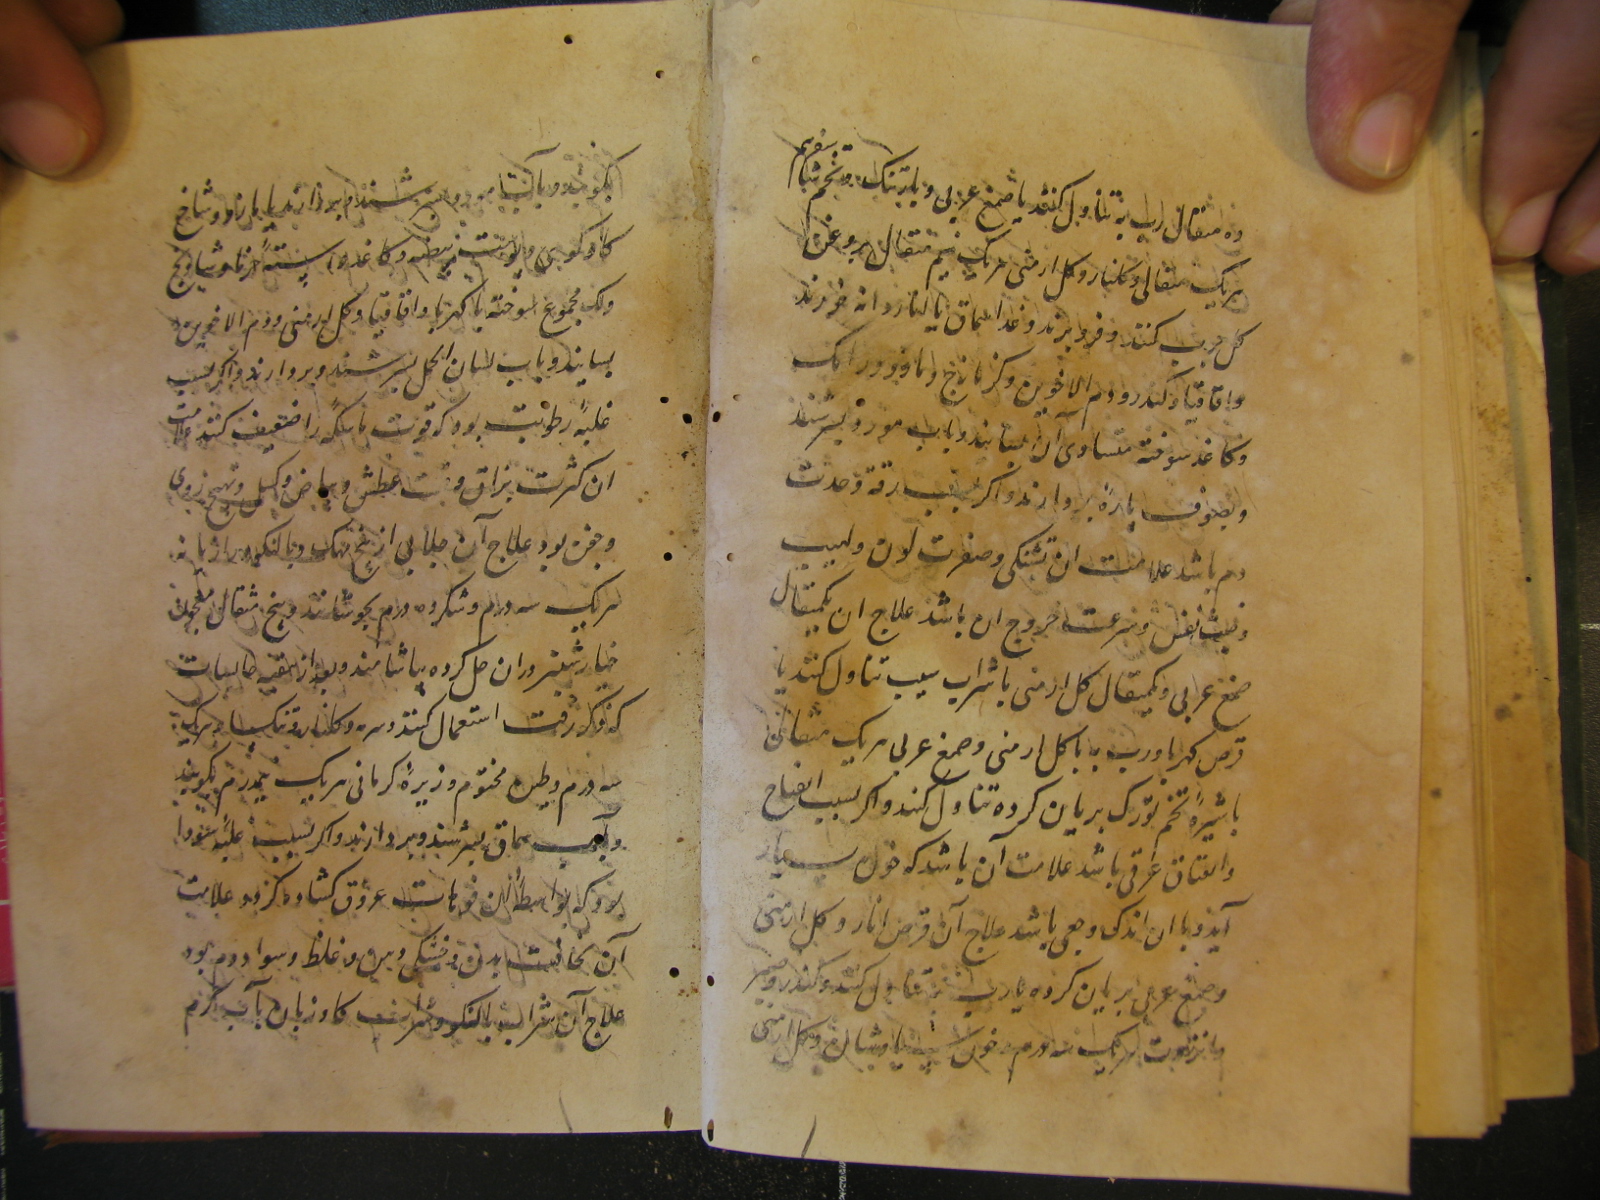 ده مثقال رب به تناول کنند یا صمغ عربی و بارتنک و تخم شاه سفرم
هریک مثقالی و کلنار و کل ارمنی هریک نیم مثقال بروغن
کل چرب کنند و فرو برند و غذا سماق یا نار دانه خورند
واقاقیا و کندر و دم الاخوین و کزمازج
و کاغذ سوخته متساوی آن بسایند و باب مورد بسرشند
و بصوف پاره بردارند و اکر بسبب رقة و حدت
دم باشد علامت ان تشنکی و صفرت لون و لهیب
و سرعت خروج ان باشد علاج ان یکمثقال
صمغ عربی و یکمثقال کل ارمنی با شراب سیب تناول کنند یا
قرص کهربا و رب به با کل ارمنی و صمغ عربی هریک مثقالی
با شیرهٔ تخم تورک بریان کرده تناول کنند و اکر بسبب انفتاح
و انفتاق عرقی باشد علامت آن باشد که خون بسیار
آید و با ان اندکی وجعی باشد علاج آن قرص انار و کل ارمنی
و صمغ عربی بریان کرده با رب به تناول کنند و کندر و صبر
و انزروت هریک سه درم خون سیاوشان و کل ارمنی
بکوبند و باب مورد بسرشند بردارند یا
کاو کوهی و پوست بیضه و کاغذ و استهٔ خرما و شیاف
مجموع سوخته با کهربا و اقاقیا و کل ارمنی و دم الاخوین
بسایند و باب لسان الحمل بسرشند و بردارند و اکر بسبب
غلبهٔ رطوبت بود که قوت ماسکه را ضعیف کند علامت
ان کثرت بزاق و عطش و بیاض و کسل و تهیج روی
و جفن بود علاج آن جلابی از بیخ مهک و بالنکو و رازیانه
هریک سه درم و شکر ده درم بجوشانند و پنج مثقال معجون
خیارشنبر دران حل کرده بیاشامند و بعد از تنقیه حابسات
که ذکر رفت استعمال کنند و کلنار
سه درم و طین مختوم و زیرهٔ کرمانی هریک نیمدرم بکوبند
و بآب سماق بسرشند و بردارند و اکر بسبب غلبهٔ سودا
بود که بواسطهٔ ان فوهات عروق کشاده کردد علامت
آن نحافت بدن و خشکی و غلظ و سواد دم بود
علاج آن شراب بالنکو و شراب کاوزبان بآب کرم